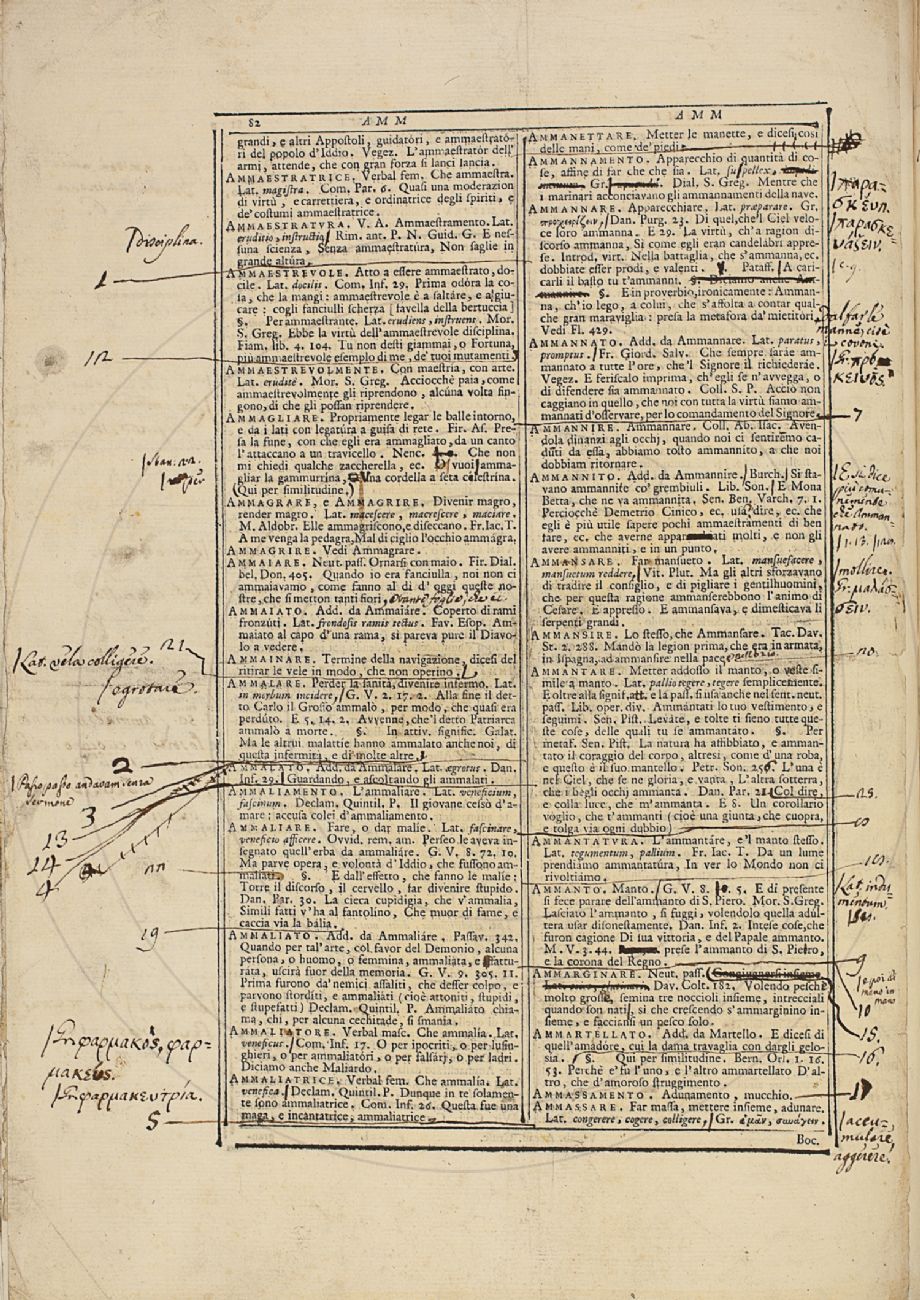 82 AMM
grandi, e altri Appostoli, guidatóri, e ammaestrató-
ri del popolo d'Iddio. Vegez. L'ammaestratór dell'
armi, attende, che con gran forza si lanci lancia.
AMMAESTRATRICE. Verbal fem. Che ammaestra.
Lat. magistra. Com. Par. 6. Quasi una moderazion
di virtù, e carrettiera, e ordinatrice degli spiriti, e
de' costumi ammaestratrice.
AMMAESTRATURA. V. A. Ammaestramento. Lat.
eruditio, instructio. Rim. ant. P. N. Guid. G. E nes-
suna scienza, Senza ammaestratúra, Non saglie in
grande altúra.
AMMAESTREVOLE. Atto a essere ammaestrato, do-
cile. Lat. docilis. Com. Inf. 29. Prima odóra la co-
sa, che la mangi: ammaestrevole è a saltáre, e a giu-
care: cogli fanciulli scherza [favella della bertuccia]
§. Per ammaestrante. Lat. erudiens, instruens. Mor.
S. Greg. Ebbe la virtù dell'ammaestrevole disciplina.
Fiam. lib. 4. 104. Tu non desti giammai, o Fortuna,
più ammaestrevole esemplo di me, de' tuoi mutamenti
AMMAESTREVOLMENTE. Con maestria, con arte.
Lat. eruditè. Mor. S. Greg. Acciocchè paia, come
ammaestrevolmente gli riprendono, alcúna volta fin-
gono, di che gli possan riprendere.
AMMAGLIARE. Propriamente legar le balle intorno,
e da i lati con legatúra a guisa di rete. Fir. As. Pre-
sa la fune, con che egli era ammagliato, da un canto
l'attaccano a un travicello. Nenc. Che non
mi chiedi qualche zaccherella, ec. vuoi amma-
gliar la gammurrina, Una cordella a seta celestrina.
(Qui per similitudine.)
AMMAGRARE, e AMMAGRIRE. Divenir magro,
render magro. Lat. macescere, macrescere, maciare.
M. Aldobr. Elle ammagriscono, e diseccano. Fr. Iac. T.
A me venga la pedagra, Mal di ciglio l'occhio ammágra.
AMMAGRIRE. Vedi Ammagrare.
AMMAIARE. Neut. pass. Ornarsi con maio. Fir. Dial.
bel. Don. 405. Quando io era fanciulla, noi non ci
ammaiavamo, come fanno al dì d'oggi queste no-
stre, che si metton tanti fiori,
AMMAIATO. Add. da Ammaiáre. Coperto di rami
fronzúti. Lat. frondosis ramis tectus. Fav. Esop. Am-
maiato al capo d'una rama, si pareva pure il Diavo-
lo a vedere.
AMMAINARE. Termine della navigazione, dicesi del
ritirar le vele in modo, che non operino.
AMMALARE. Perder la sanità, divenire infermo. Lat.
in morbum incidere, G. V. 2. 17. 2. Alla fine il det-
to Carlo il Grosso ammalò, per modo, che quasi era
perdúto. E 5. 14. 2. Avvenne, che 'l detto Patriarca
ammalò a morte. §. In attiv. signific. Galat.
Ma le altrui malattíe hanno ammalato anche noi, di
questa infermità, e di molte altre.
AMMALATO. Add. da Ammalare. Lat. ægrotus. Dan.
Inf. 29. Guardando, e ascoltando gli ammalati.
AMMALIAMENTO. L'ammaliare. Lat. veneficium,
fascinum. Declam. Quintil. P. Il giovane cessò d'a-
mare: accusa colei d'ammaliamento.
AMMALIARE. Fare, o dar malíe. Lat. fascinare,
veneficio afficere. Ovvid. rem. am. Perseo le aveva in-
segnato quell'erba da ammaliáre. G. V. 8. 72. 10.
Ma parve opera, e volontà d'Iddio, che fussono am-
maliati. §. E dall'effetto, che fanno le malíe:
Torre il discorso, il cervello, far divenire stupido.
Dan. Par. 30. La cieca cupidigia, che v'ammalia,
Simili fatti v'ha al fantolino, Che muor di fame, e
caccia via la bália.
AMMALIATO. Add. da Ammaliáre. Passav. 342.
Quando per tal'arte, col favor del Demonio, alcuna
persona, o huomo, o femmina, ammaliata, e fattu-
rata, uscirà fuor della memoria. G. V. 9. 305. 11.
Prima furono da'nemici assaliti, che desser colpo, e
parvono storditi, e ammaliati (cioè attoniti, stupidi,
e stupefatti) Declam. Quintil. P. Ammaliato chia-
ma, chi, per alcuna cechitade, si smania.
AMMALIATORE. Verbal masc. Che ammalia. Lat.
veneficus. Com. Inf. 17. O per ipocriti, o per lusin-
ghieri, o per ammaliatóri, o per falsárj, o per ladri.
Diciamo anche Maliardo.
AMMALIATRICE. Verbal fem. Che ammalia. Lat.
venefica. Declam. Quintil. P. Dunque in te solamen-
te sono ammaliatrice. Com. Inf. 26. Questa fue una
maga, e incantatrice, ammaliatrice
AMM
AMMANETTARE. Metter le manette, e dicesi così
delle mani, come de' piedi.
AMMANNAMENTO. Apparecchio di quantità di co-
se, affine di far che che sia. Lat. suppellex,
Gr. Dial. S. Greg. Mentre che
i marinari acconciavano gli ammannamenti della nave.
AMMANNARE. Apparecchiare. Lat. præparare. Gr.
Dan. Purg. 23. Di quel, che 'l Ciel velo-
ce loro ammanna. E 29. La virtù, ch'a ragion di-
scorso ammanna, Si come egli eran candelábri appre-
se. Introd. virt. Nella battaglia, che s'ammanna, ec.
dobbiate esser prodi, e valenti. Pataff. A cari-
carli il basto tu t'ammanni. §. Diciamo anche Am-
mannire. §. E in proverbio, ironicamente: Amman-
na, ch'io lego, a colui, che s'affolta a contar qual-
che gran maraviglia: presa la metafora da' mietitóri.
Vedi Fl. 429.
AMMANNATO. Add. da Ammannare. Lat. paratus,
promptus. Fr. Giord. Salv. Che sempre saráe am-
mannato a tutte l'ore, che 'l Signore il richiederáe.
Vegez. E feriscalo imprima, ch'egli se n'avvegga, o
di difendere sia ammannato. Coll. S. P. Acciò non
caggiano in quello, che noi con tutta la virtù siamo am-
mannati d'osservare, per lo comandamento del Signore
AMMANNIRE. Ammannare. Coll. Ab. Isac. Aven-
dola dinanzi agli occhj, quando noi ci sentirémo ca-
duti da essa, abbiamo tosto ammannito, a che noi
dobbiam ritornare.
AMMANNITO. Add. da Ammannire. Burch. Si sta-
vano ammannite co' grembiuli. Lib. Son. E Mona
Betta, che ne va ammannita. Sen. Ben. Varch. 7. 1.
Perciocchè Demetrio Cinico, ec. usa dire, ec. che
egli è più utile sapere pochi ammaestramenti di ben
fare, ec. che averne apparati molti, e non gli
avere ammanniti, e in un punto.
AMMANSARE. Far mansueto. Lat. mansuefacere,
mansuetum reddere, Vit. Plut. Ma gli altri sforzavano
di tradire il consiglio, e di pigliare i gentilhuomini,
che per questa ragione ammanserebbono l'animo di
Cesare. E appresso. E ammansava, e dimesticava li
serpenti grandi.
AMMANSIRE. Lo stesso, che Ammansare. Tac. Dav.
St. 2. 288. Mandò la legion prima, che era in armata,
in Ispagna, ad ammansire nella pace
AMMANTARE. Metter addosso il manto, o veste si-
mile a manto. Lat. pallio tegere, tegere semplicemente.
E oltre alla signif. att. e la pass. si usa anche nel sent. neut.
pass. Lib. oper. div. Ammántati lo tuo vestimento, e
seguimi. Sen. Pist. Leváte, e tolte ti sieno tutte que-
ste cose, delle quali tu se ammantato. §. Per
metaf. Sen. Pist. La natura ha affibbiato, e amman-
tato il coraggio del corpo, altresì, come d'una roba,
e questo è il suo mantello. Petr. Son. 256. L'una è
nel Ciel, che se ne gloria, e vanta, L'altra sotterra,
che i begli occhj ammanta. Dan. Par. 21. Col dire,
e colla luce, che m'ammanta. E 8. Un corollario
voglio, che t'ammanti (cioè una giunta, che cuopra,
e tolga via ogni dubbio)
AMMANTATURA. L'ammantáre, e 'l manto stesso.
Lat. tegumentum, pallium. Fr. Iac. T. Da un lume
prendiamo ammantatúra, In ver lo Mondo non ci
rivoltiamo.
AMMANTO. Manto. G. V. 8. 5. E di presente
si fece parare dell'ammanto di S. Piero. Mor. S. Greg.
Lasciato l'ammanto, si fuggì, volendolo quella adúl-
tera usar disonestamente. Dan. Inf. 2. Intese cose, che
furon cagione Di sua vittoria, e del Papale ammanto.
M. V. 3. 44. prese l'ammanto di S. Pietro,
e la corona del Regno.
AMMARGINARE. Neut. pass. Congiugnersi insieme
Dav. Colt. 182. Volendo pesche
molto grosse, semina tre noccioli insieme, intrecciali
quando son nati, sì che crescendo s'ammarginino in-
sieme, e faccinsi un pesco solo.
AMMARTELLATO. Add. da Martello. E dicesi di
quell'amadóre, cui la dama travaglia con dargli gelo-
sia. §. Qui per similitudine. Bern. Orl. 1. 16.
53. Perchè e' fu l'uno, e l'altro ammartellato D'al-
tro, che d'amoroso struggimento.
AMMASSAMENTO. Adunamento, mucchio.
AMMASSARE. Far massa, mettere insieme, adunare.
Lat. congerere, cogere, colligere, Gr. ἀμᾶν, συνάγειν.
Boc.
Disciplina.
1
12
21
Lat. vela colligere.
Ægrotare.
2
3
13
14
4
19
Gr. φαρμακός, φαρ-
μακεύς.
Gr. φαρμακευτρία.
5
παρα-
σκευή.
παρασκε-
υάζειν.
7
E si dice
più comu-
nemente
mollire.
20.
Lat. indu-
mentum
9
10
15.
16.
accu-
mulare,
aggerere.